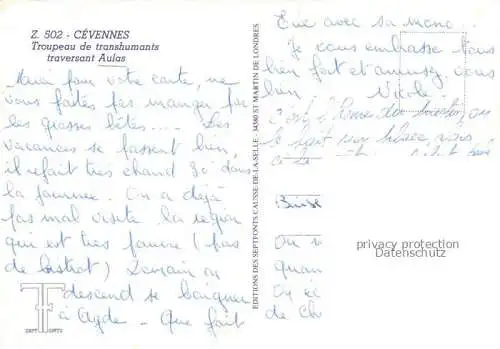 Z. 502 - CÉVENNES
Troupeau de transhumants
traversant Aulas
Merci pour votre carte, ne
vous faites pas manger par
les grosses bêtes.... Les
vacances se passent bien
il refait très chand 30° dans
la journée. On a déjà
pas mal visité la région
qui est très pauvre (pas
de bistrot) Demain on
descend se baigner
à Agde - Que fait
SEPT FONTS
EDITIONS DES SEPTFONTS CAUSSE-DE-LA-SELLE - 34380 ST MARTIN DE LONDRES
Eve avec sa mono...
Je vous embrasse tous
bien fort et amusez vous
bien Nicole
on
le fait sur place, vous
Ou v
quan
On é
de Ch
privacy protection
Datenschutz